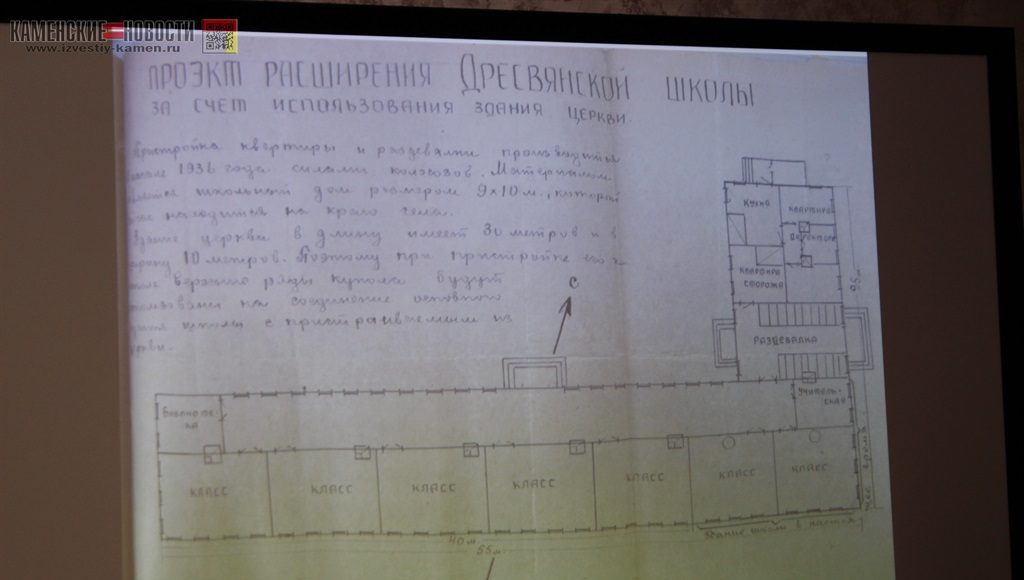 КАМЕНСКИЕ НОВОСТИ
www.izvestiy-kamen.ru
ПРОЭКТ РАСШИРЕНИЯ ДРЕСВЯНСКОЙ ШКОЛЫ
ЗА СЧЕТ ИСПОЛЬЗОВАНИЯ ЗДАНИЯ ЦЕРКВИ.
Пристройка квартиры и раздевалки производится
1936 года силами колхозов. Материалом
школьный дом размером 9х10 м., который
находится на краю села.
Здание церкви в длину имеет 30 метров и в
10 метров. Поэтому при пристройке его к
ряды купола будут
на соединение основного
школы с из
С
КУХНЯ
КВАРТИРА
ДИРЕКТОРА
КВАРТИРА
СТОРОЖА
РАЗДЕВАЛКА
УЧИТЕЛЬ-
СКАЯ
БИБЛИОТЕ-
КА
КЛАСС
КЛАСС
КЛАСС
КЛАСС
КЛАСС
КЛАСС
КЛАСС
здание школы в
40 м.
55 м.